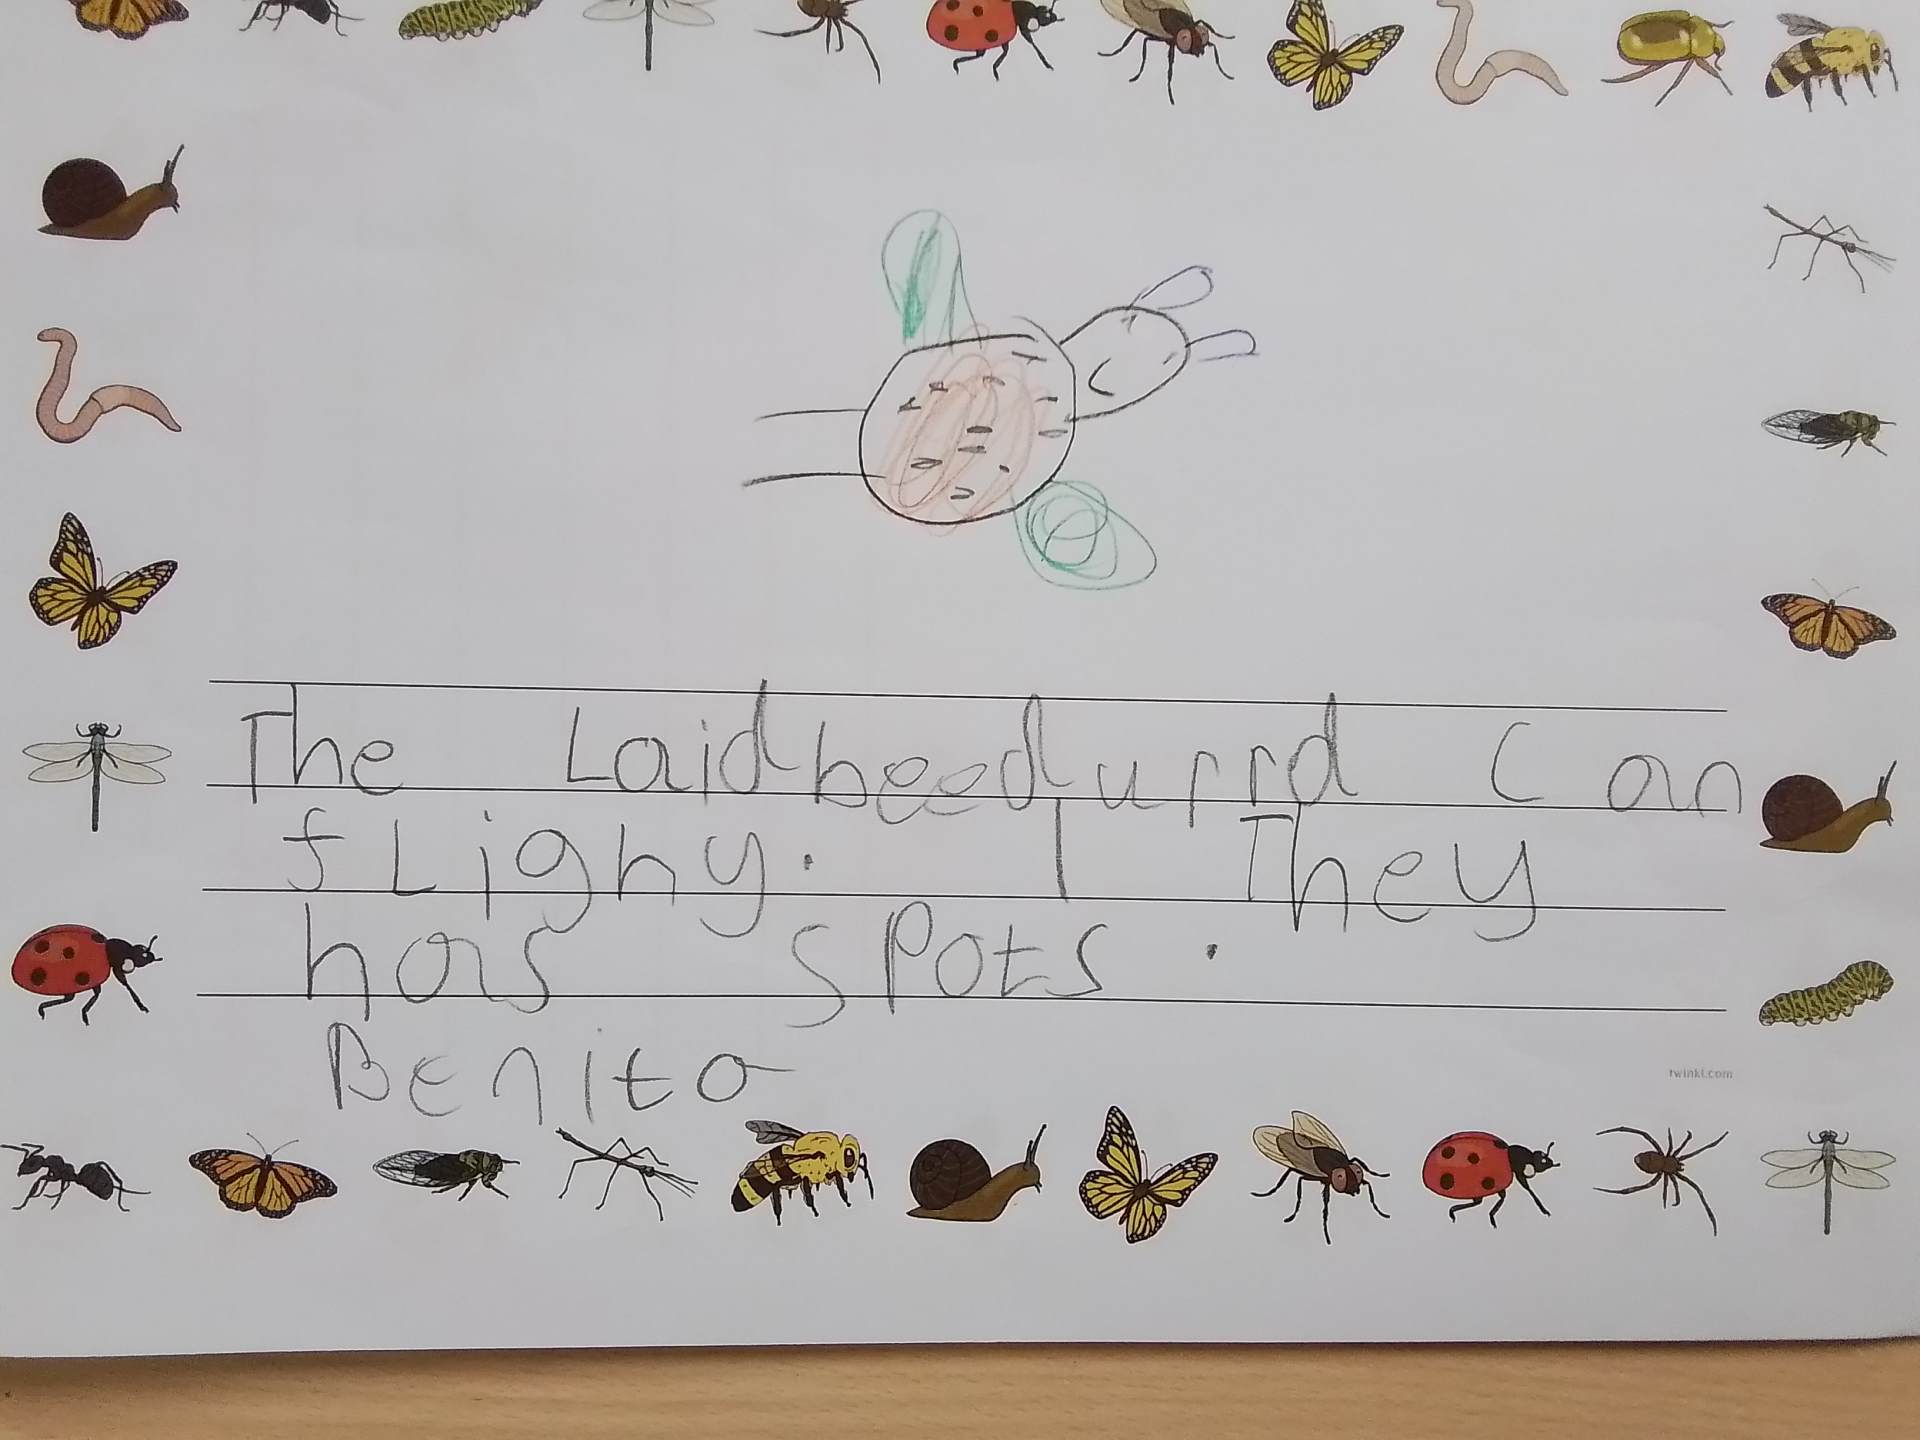 The Laidbeedurrd Can
fLighy. I They
has spots.
Benito
twinkl.com